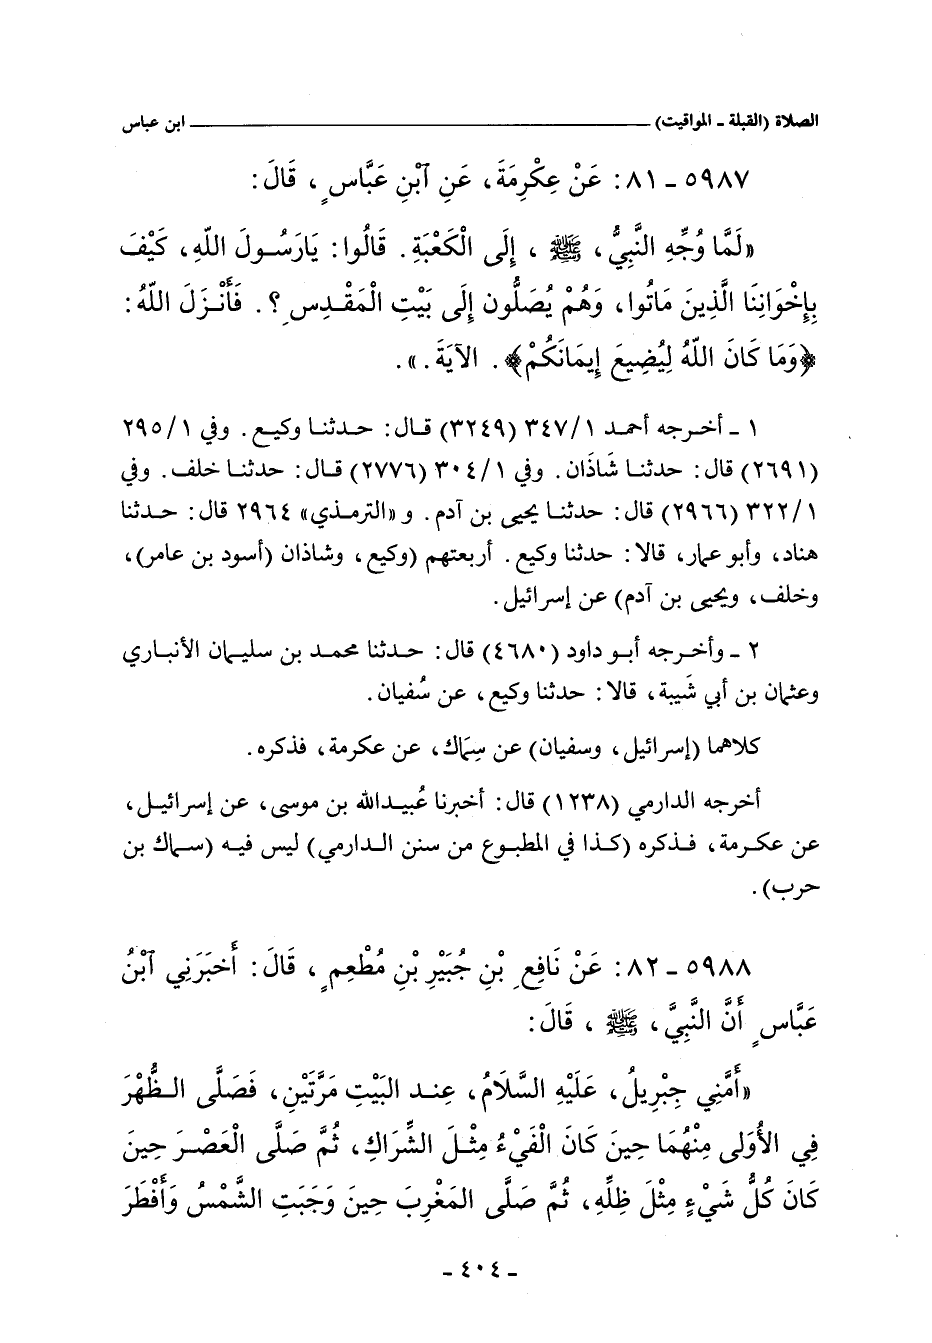 الصلاة (القبلة ـ المواقيت) ــــــــــــــــــــ ابن عباس
٥٩٨٧ ـ ٨١: عَنْ عِكْرِمَةَ، عَنِ ٱبْنِ عَبَّاسٍ، قَالَ:
«لَمَّا وُجِّهَ النَّبِيُّ، ﷺ، إِلَى الْكَعْبَةِ. قَالُوا: يَارَسُولَ اللّهِ، كَيْفَ
بِإِخْوَانِنَا الَّذِينَ مَاتُوا، وَهُمْ يُصَلُّون إِلَى بَيْتِ الْمَقْدِسِ؟. فَأَنْزَلَ اللّهُ:
﴿وَمَا كَانَ اللّهُ لِيُضِيعَ إِيمَانَكُمْ﴾. الآيَةَ.».
١ ـ أخرجه أحمد ٣٤٧/١ (٣٢٤٩) قال: حدثنا وكيع. وفي ٢٩٥/١
(٢٦٩١) قال: حدثنا شَاذَان. وفي ٣٠٤/١ (٢٧٧٦) قال: حدثنا خلف. وفي
٣٢٢/١ (٢٩٦٦) قال: حدثنا يحيى بن آدم. و«الترمذي» ٢٩٦٤ قال: حدثنا
هناد، وأبو عمار، قالا: حدثنا وكيع. أربعتهم (وكيع، وشاذان (أسود بن عامر)،
وخلف، ويحيى بن آدم) عن إسرائيل.
٢ ـ وأخرجه أبو داود (٤٦٨٠) قال: حدثنا محمد بن سليمان الأنباري
وعثمان بن أبي شَيبة، قالا: حدثنا وكيع، عن سُفيان.
كلاهما (إسرائيل، وسفيان) عن سِمَاك، عن عكرمة، فذكره.
أخرجه الدارمي (١٢٣٨) قال: أخبرنا عُبيدالله بن موسى، عن إسرائيل،
عن عكرمة، فذكره (كذا في المطبوع من سنن الدارمي) ليس فيه (سماك بن
حرب).
٥٩٨٨ ـ ٨٢: عَنْ نَافِعِ بْنِ جُبَيْرِ بْنِ مُطْعِمٍ، قَالَ: أَخبَرَنِي ٱبْنُ
عَبَّاسٍ أَنَّ النَّبِيَّ، ﷺ، قَالَ:
«أَمَّنِي جِبْرِيلُ، عَلَيْهِ السَّلَامُ، عِند البَيْتِ مَرَّتَيْنِ، فَصَلَّى الظُّهْرَ
فِي الأُوَلى مِنْهُمَا حِينَ كَانَ الْفَيْءُ مِثْلَ الشِّرَاكِ، ثُمَّ صَلَّى الْعَصْرَ حِينَ
كَانَ كُلُّ شَيْءٍ مِثْلَ ظِلِّهِ، ثُمَّ صَلَّى المَغْرِبَ حِينَ وَجَبَتِ الشَّمْسُ وَأَفْطَرَ
ـ ٤٠٤ ـ